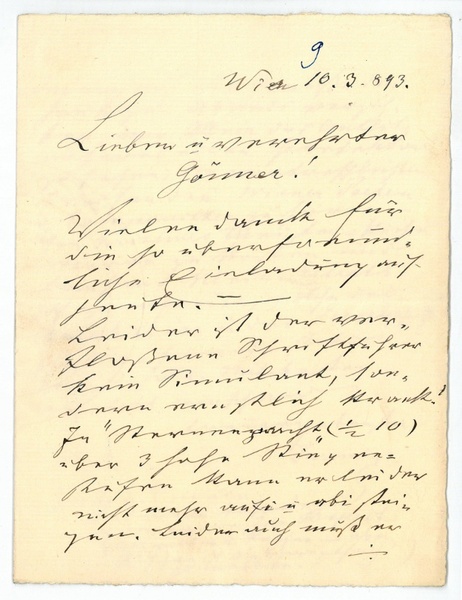 9
Wien 10. 3. 893.
Lieber u verehrter
Gönner!
Vielen dank für
die so überfreund-
liche Einladung auf
heute. —
Leider ist der ver-
floßene Schriftführer
kein Simulant, son-
dern ernstlich krank!
In "Sternennacht (1/2 10)
über 3 hohe
kann er leider
nicht mehr aufi u abi stei-
gen. Leider auch muß er